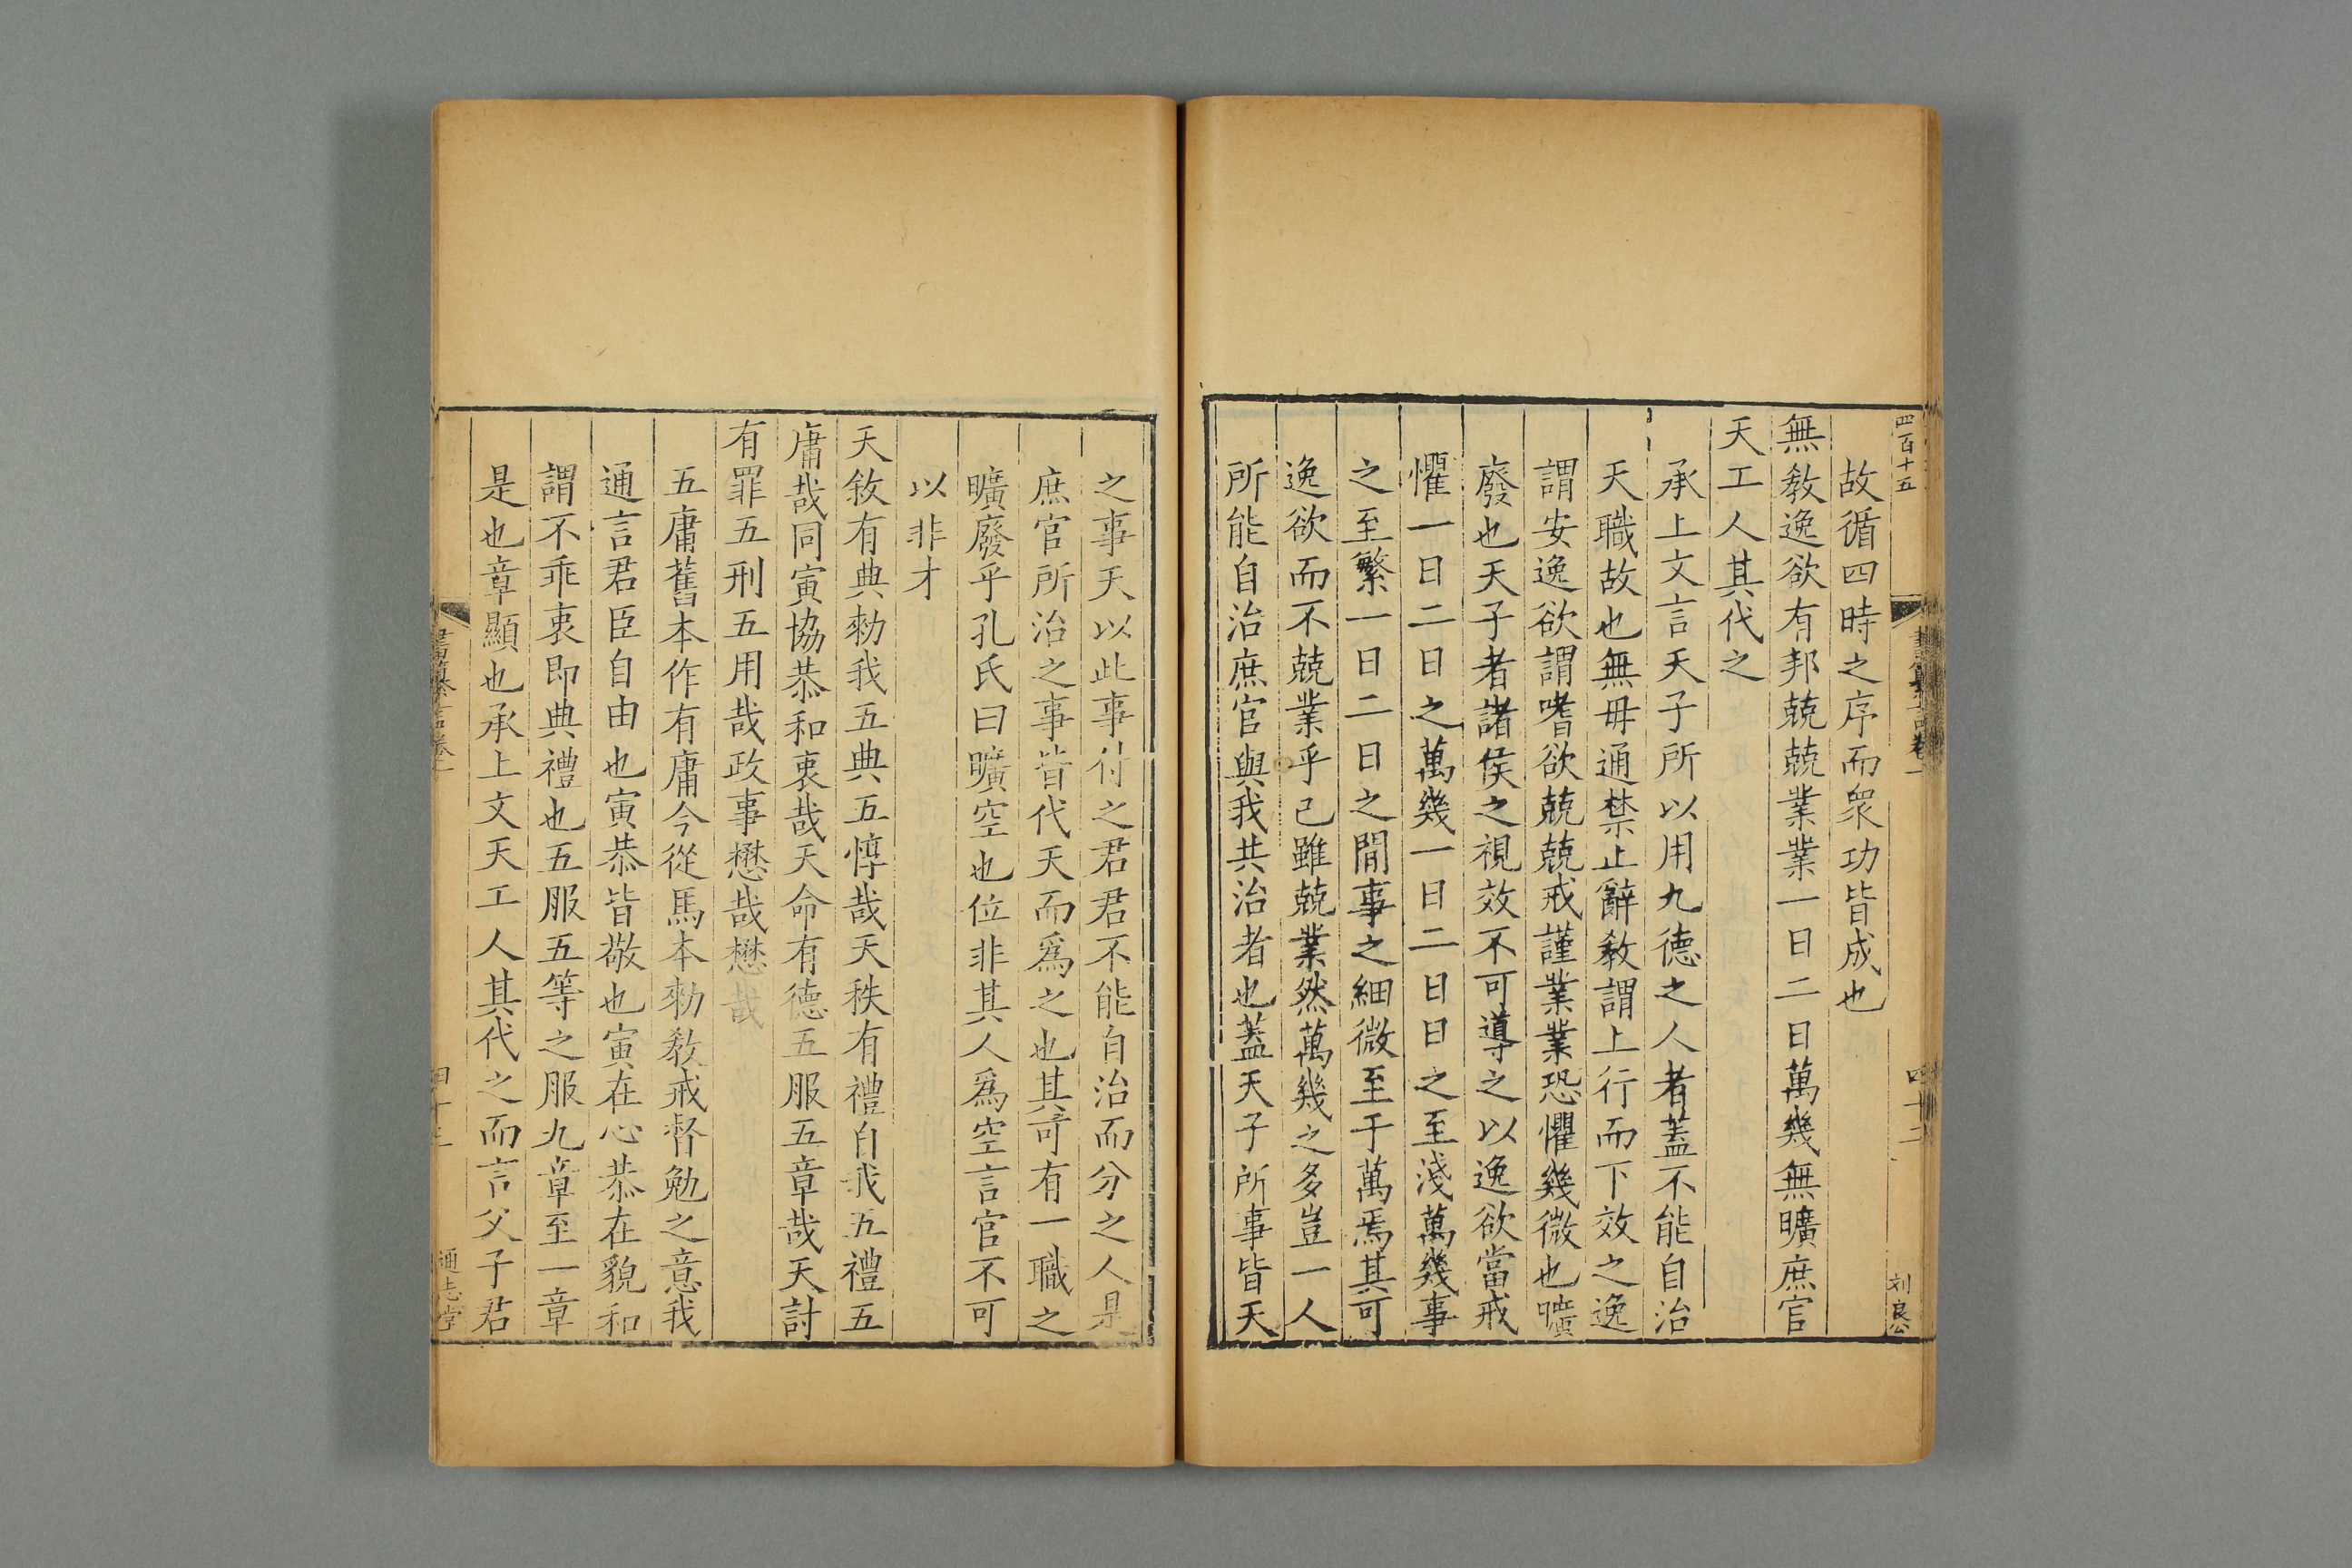 四百十五
四十二
刘良公
故循四時之序而衆功皆成也
無敎逸欲有邦兢兢業業一日二日萬幾無曠庶官
天工人其代之
承上文言天子所以用九德之人者蓋不能自治
天職故也無毋通禁止辭敎謂上行而下效之逸
謂安逸欲謂嗜欲兢兢戒謹業業恐懼幾微也曠
廢也天子者諸侯之視效不可導之以逸欲當戒
懼一日二日之萬幾一日二日日之至淺萬幾事
之至繁一日二日之閒事之細微至于萬焉其可
逸欲而不兢業乎己雖兢業然萬幾之多豈一人
所能自治庶官與我共治者也蓋天子所事皆天
之事天以此事付之君君不能自治而分之人是
庶官所治之事皆代天而爲之也其可有一職之
曠廢乎孔氏曰曠空也位非其人爲空言官不可
以非才
天敘有典勑我五典五惇哉天秩有禮自我五禮五
庸哉同寅協恭和衷哉天命有德五服五章哉天討
有罪五刑五用哉政事懋哉懋哉
五庸舊本作有庸今從馬本勑敎戒督勉之意我
通言君臣自由也寅恭皆敬也寅在心恭在貌和
謂不乖衷即典禮也五服五等之服九章至一章
是也章顯也承上文天工人其代之而言父子君
書纂言卷一
四十三
通志堂